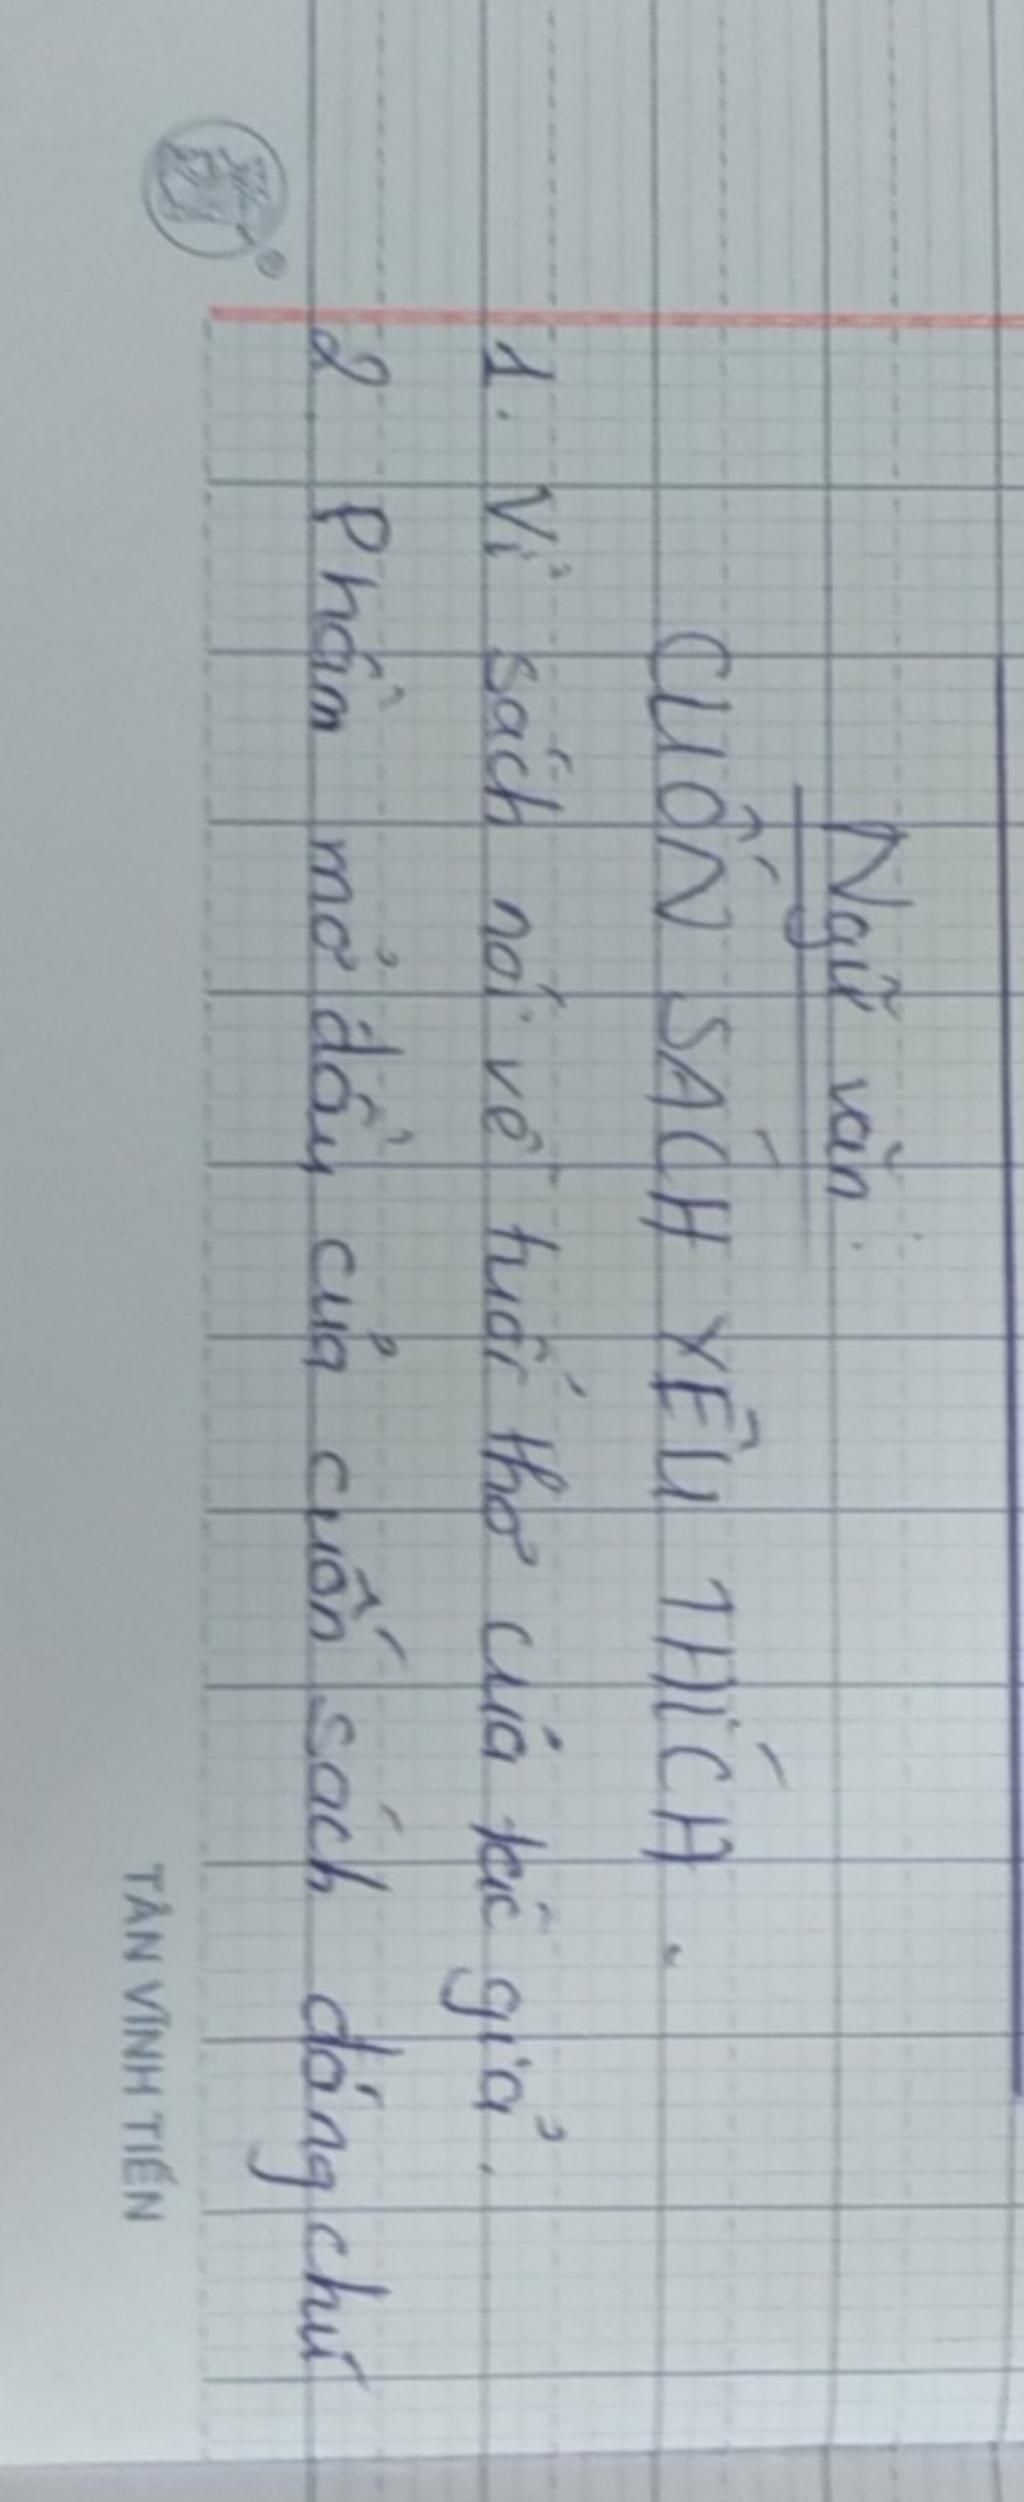 Ngữ văn.
CUỐN SÁCH YÊU THÍCH.
1. Vì sách nói về tuổi thơ của tác giả.
2. Phần mở đầu của cuốn sách đáng chú
TÂN VĨNH TIẾN